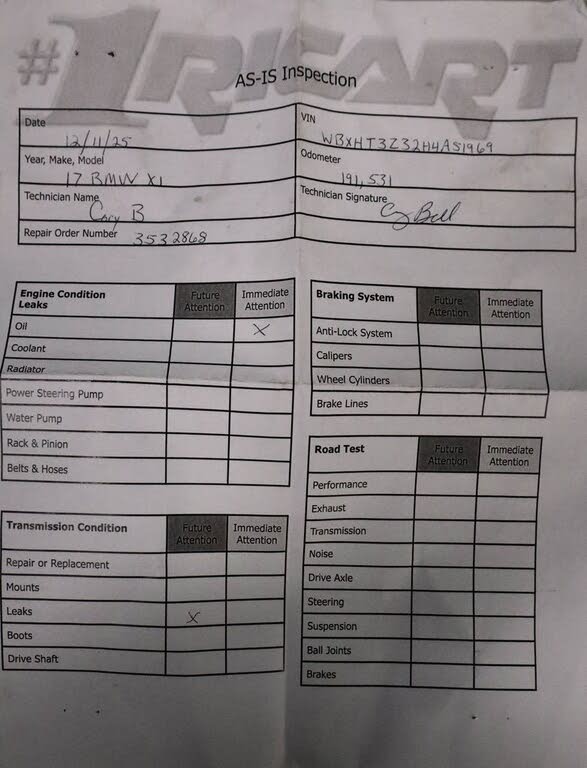 #1 RICART
AS-IS Inspection
Date
12/11/25
VIN
WBXHT3Z32H4A51969
Year, Make, Model
17 BMW X1
Odometer
191,531
Technician Name
Cory B
Technician Signature
C Bell
Repair Order Number 3532868
Engine Condition Leaks Future Attention Immediate Attention
Oil X
Coolant
Radiator
Power Steering Pump
Water Pump
Rack & Pinion
Belts & Hoses
Transmission Condition Future Attention Immediate Attention
Repair or Replacement
Mounts
Leaks X
Boots
Drive Shaft
Braking System Future Attention Immediate Attention
Anti-Lock System
Calipers
Wheel Cylinders
Brake Lines
Road Test Future Attention Immediate Attention
Performance
Exhaust
Transmission
Noise
Drive Axle
Steering
Suspension
Ball Joints
Brakes